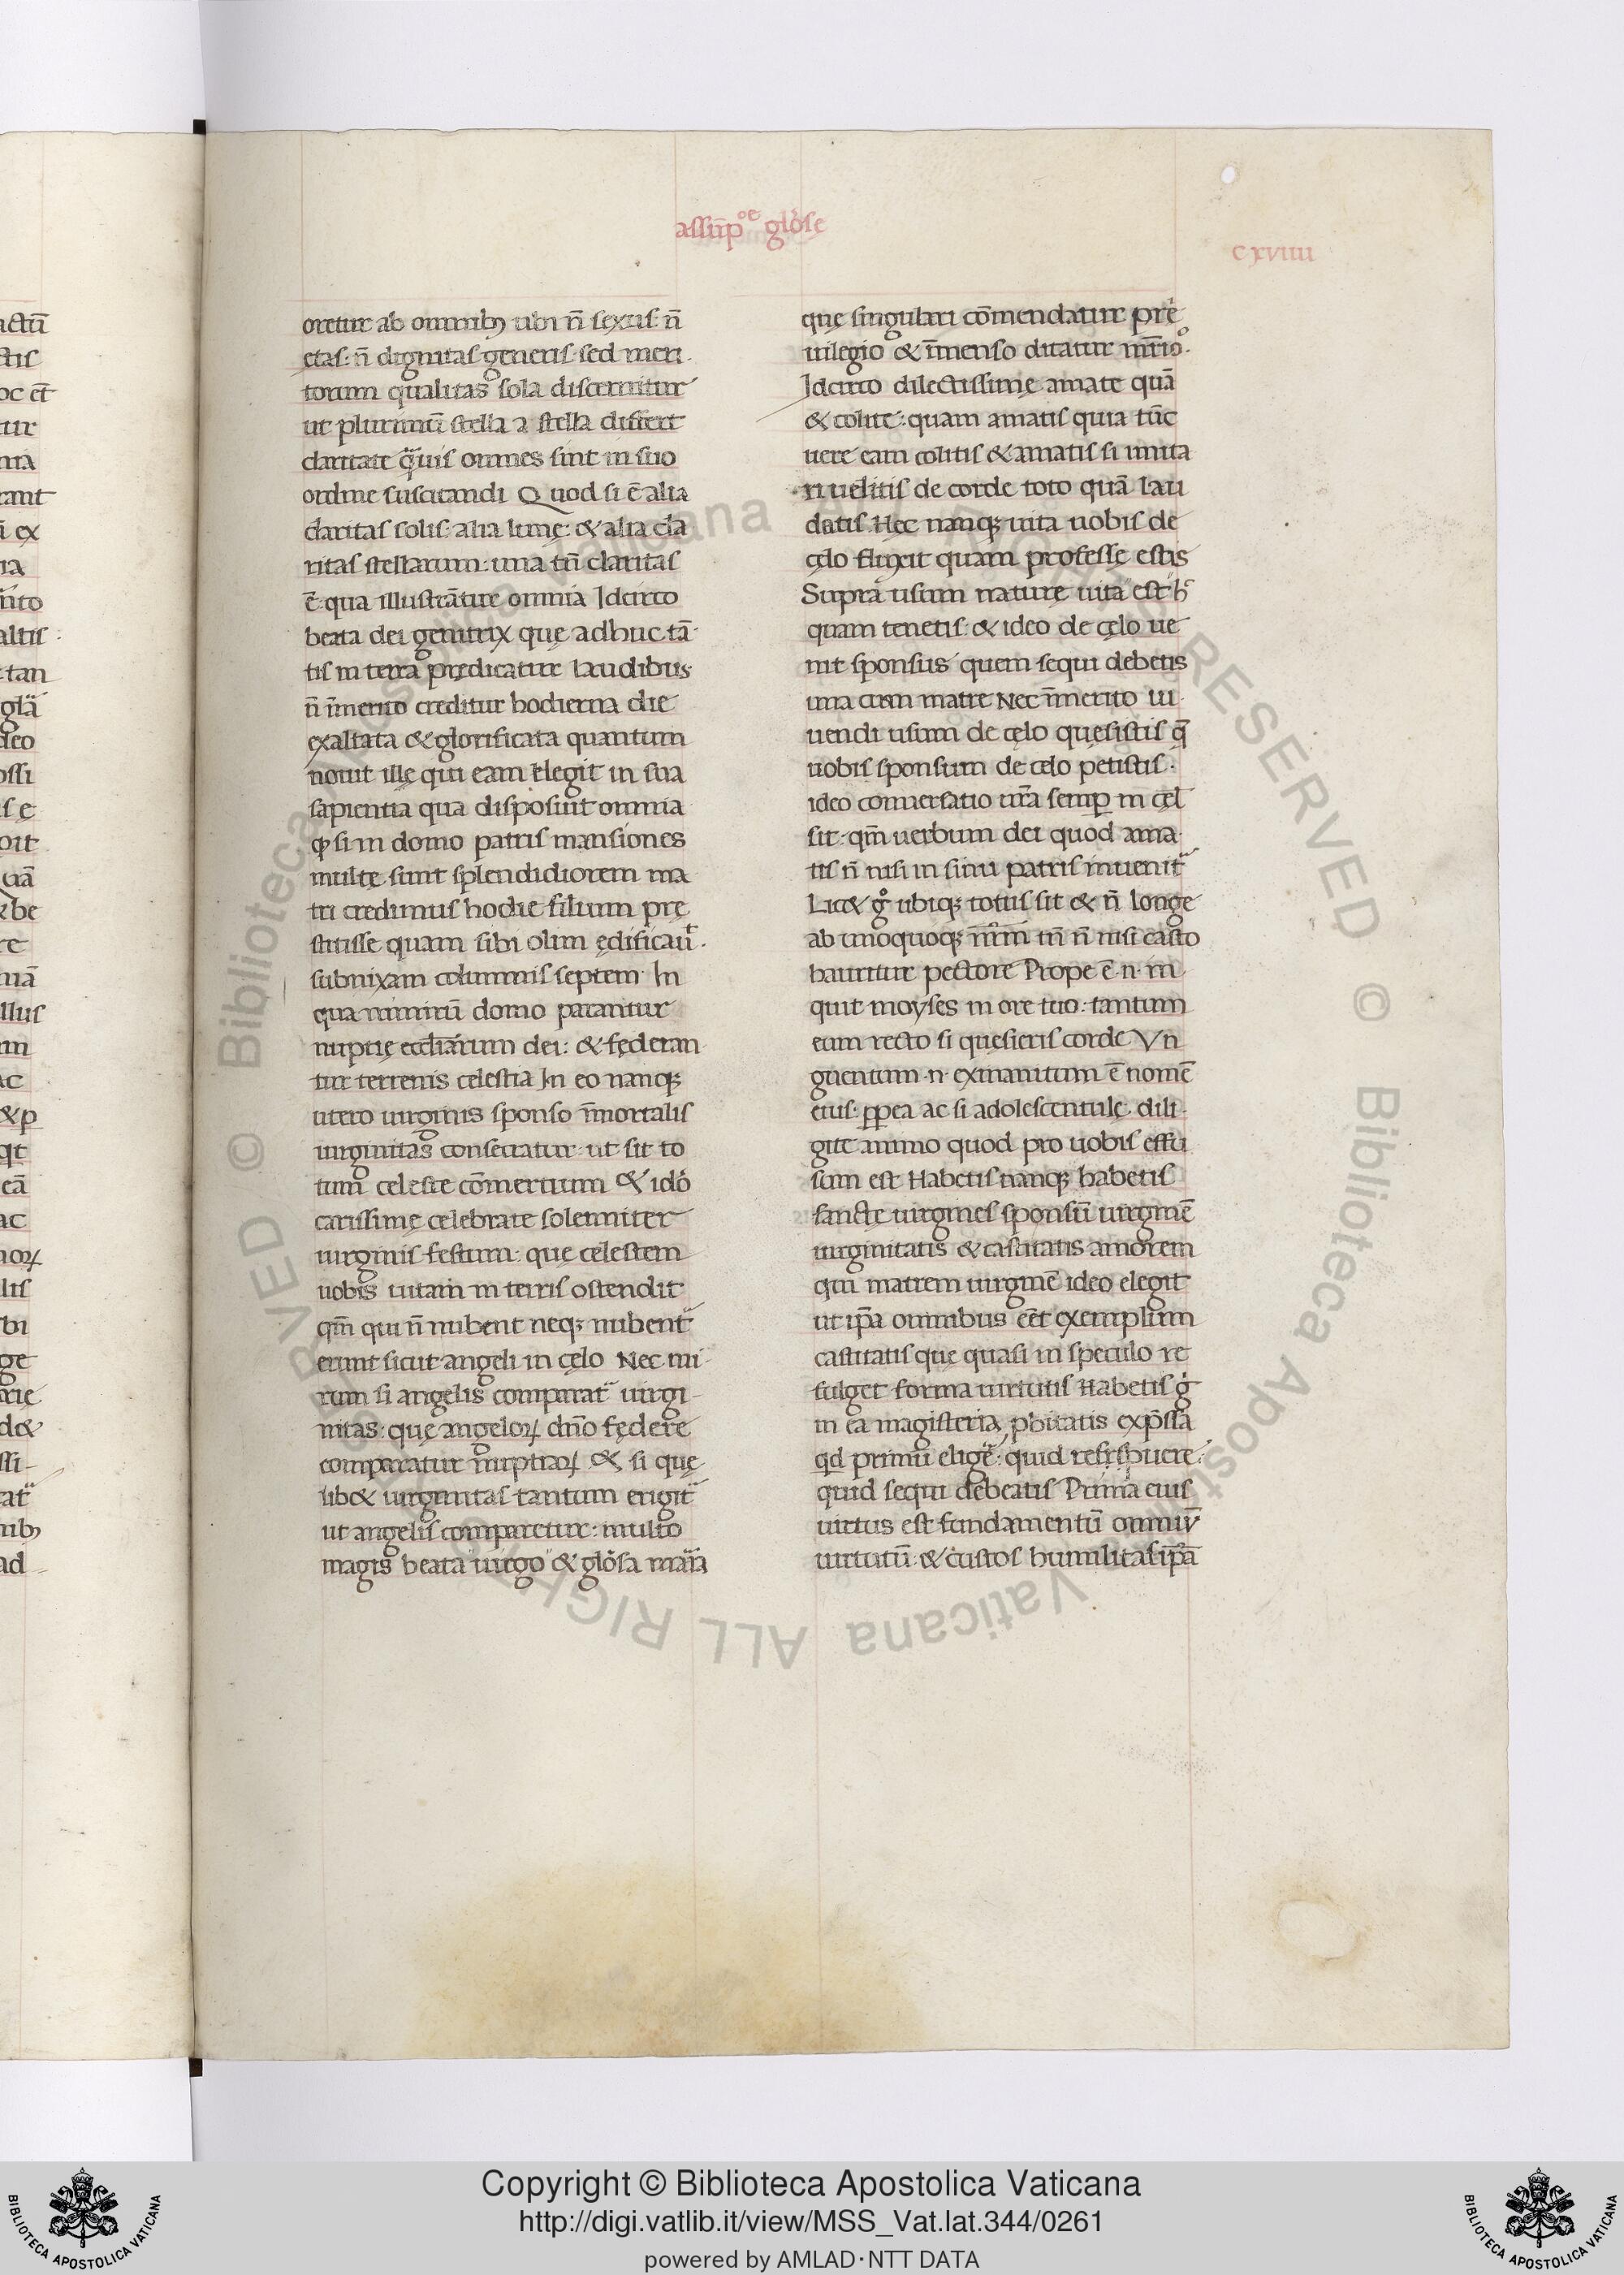 assūp^oe glo̅se
cxviiii
oretur ab omnib; ubi n̅ sexus: n̅
etas: n̅ dignitas generis sed meri
torum qualitas sola discernitur
ut plurimū stella a stella differt
claritate q̅uis omnes sint in suo
ordine suscitandi Quod si ē alia
claritas solis: alia lunę: & alia cla
ritas stellarum: una tn̅ claritas
ē: qua illustrātur omnia Idcirco
beata dei genitrix quę adhuc tā
tis in terra prędicatur laudibus
n̅ īmerito creditur hodierna die
exaltata & glorificata quantum
nouit ille qui eam elegit in sua
sapientia qua disposuit omnia
qđ si in domo patris mansiones
multę sunt splendidiorem ma
tri credimus hodie filium prę
stitisse quam sibi olim ędificau̅t
subnixam columnis septem In
qua nimirū domo parantur
nuptię eccl̅iarum dei: & fęderan
tur terrenis celestia In eo nanq;
utero uirginis sponso īmortalis
uirginitas consecratur ut sit to
tum celeste cōmertium & idō
carissimę celebrate solemniter
uirginis festum: que celestem
uobis uitam in terris ostendit
qm̅ qui n̅ nubent neq; nubent̅
erunt sicut angeli in cęlo Nec mi
rum si angelis comparat̅ uirgi
nitas: quę angeloꝝ dn̅o fędere
comparatur nuptiaꝝ & si quę
lib& uirginitas tantum erigit̅
ut angelis comparetur: multo
magis beata uirgo & glo̅sa maria
quę singulari cōmendatur pre
uilegio & īmenso ditatur mr̅io
Idcirco dilectissimę amate quā
& colite: quam amatis quia tūc
uere eam colitis & amatis si imita
ri uelitis de corde toto quā lau
datis. Hec nanq; uita uobis de
cęlo fluxit quam professe estis
Supra usum naturę uita est h̅
quam tenetis: & ideo de cęlo ue
nit sponsus quem sequi debetis
una cum matre Nec īmerito ui
uendi usum de cęlo quęsistis q̅
uobis sponsum de celo petistis.
ideo conuersatio ur̅a semp̱ in cęl
sit: qm̅ uerbum dei quod ama
tis n̅ nisi in sinu patris inuenit̅
Lic& g̊ ubiq; totus sit & n̅ longe
ab unoquoq; nr̅m tn̅ n̅ nisi casto
hauritur pectore Prope ē .n. in
quit moyses in ore tuo: tantum
eum recto si quęsieris corde Vn
guentum .n. exinanitum ē nomē
eius: ꝓp̱ea ac si adolescentulę dili
gite animo quod pro uobis effu
sum est Habetis nanq; habetis
sanctę uirgines sponsū uirginē
uirginitatis & castitatis amorem
qui matrem uirginē ideo elegit
ut ip̅a omnibus eēt exemplum
castitatis quę quasi in speculo re
fulget forma uirtutis Habetis g̊
in ea magisteria ꝓbitatis exp̅ssa
qd primū eligę̅: quid respuere:
quid sequi debeatis Prima eius
uirtus est fundamentū omniū
uirtutū: & custos humilitas ip̅a
Copyright © Biblioteca Apostolica Vaticana
http://digi.vatlib.it/view/MSS_Vat.lat.344/0261
powered by AMLAD·NTT DATA